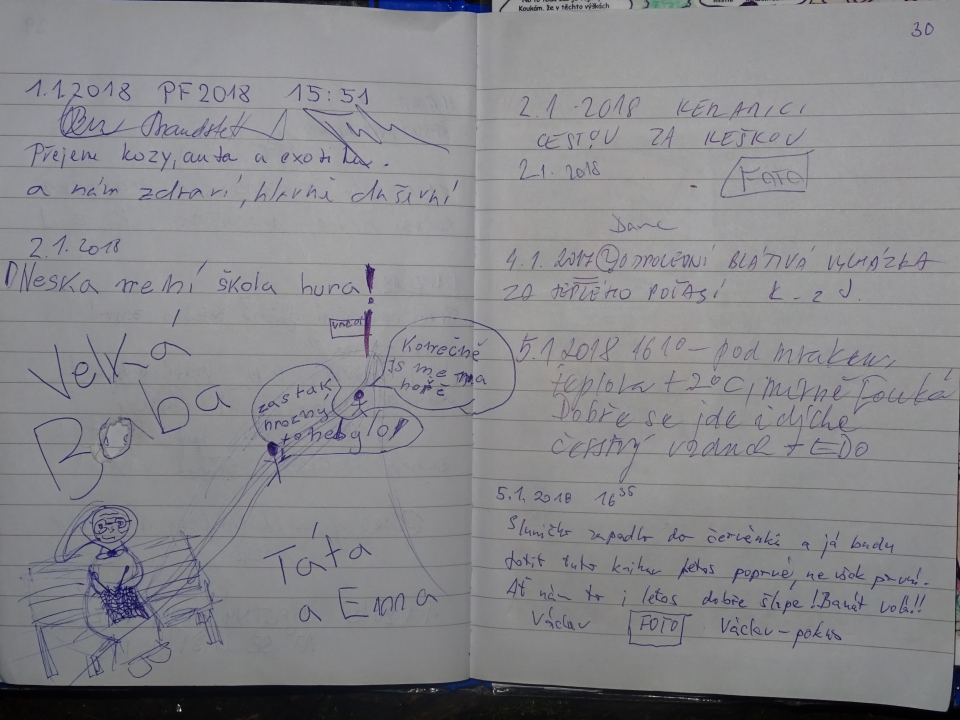 1.1.2018 PF2018 15:51
Přejeme kozy, auta a
a nám zdraví, hlavně duševní
2.1.2018
Neska neni škola hura!
Velká
Baba
VRCHOL
Konečně
jsme na
hoře
zastak
hrozný
to nebylo!
Táta
a Ema
Koukám, že v těchto výškách
30
2.1.2018
CESTOU ZA KEŠKOU
2.1.2018
FOTO
Dana
4.1.2017 ODPOLEDNÍ BLÁTIVÁ VYCHÁZKA
ZA TEPLÉHO POČASÍ K-2 J.
5.1 2018 16 10 – pod mrakem,
teplota +2°C, mírně fouká
Dobře se jde i dýchá
čerstvý vzduch + EDO
5.1.2018 16 35
Sluníčko zapadlo do červánků a já budu
fotit tuto knihu letos poprvé, ne však prvně.
Ať nám to i letos dobře šlape! Banát volá!!
Václav FOTO Václav-pokus